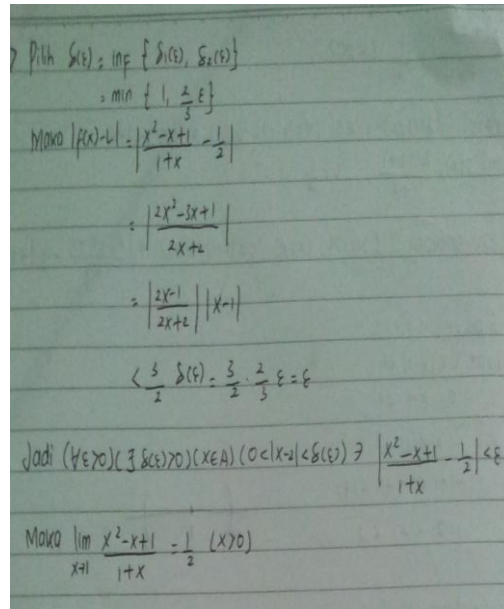 Pilih δ(ε) = inf {δ₁(ε), δ₂(ε)}
= min {1, 2/3 ε}
Maka |f(x)-L| = |(x²-x+1)/(1+x) - 1/2|
= |(2x²-3x+1)/(2x+2)|
= |(2x-1)/(2x+2)| |x-1|
< 3/2 δ(ε) = 3/2 . 2/3 ε = ε
Jadi (∀ε>0)(∃ δ(ε)>0)(x∈A)(0<|x-2|<δ(ε)) ∋ |(x²-x+1)/(1+x) - 1/2| < ε
Maka lim x→1 (x²-x+1)/(1+x) = 1/2 (x>0)